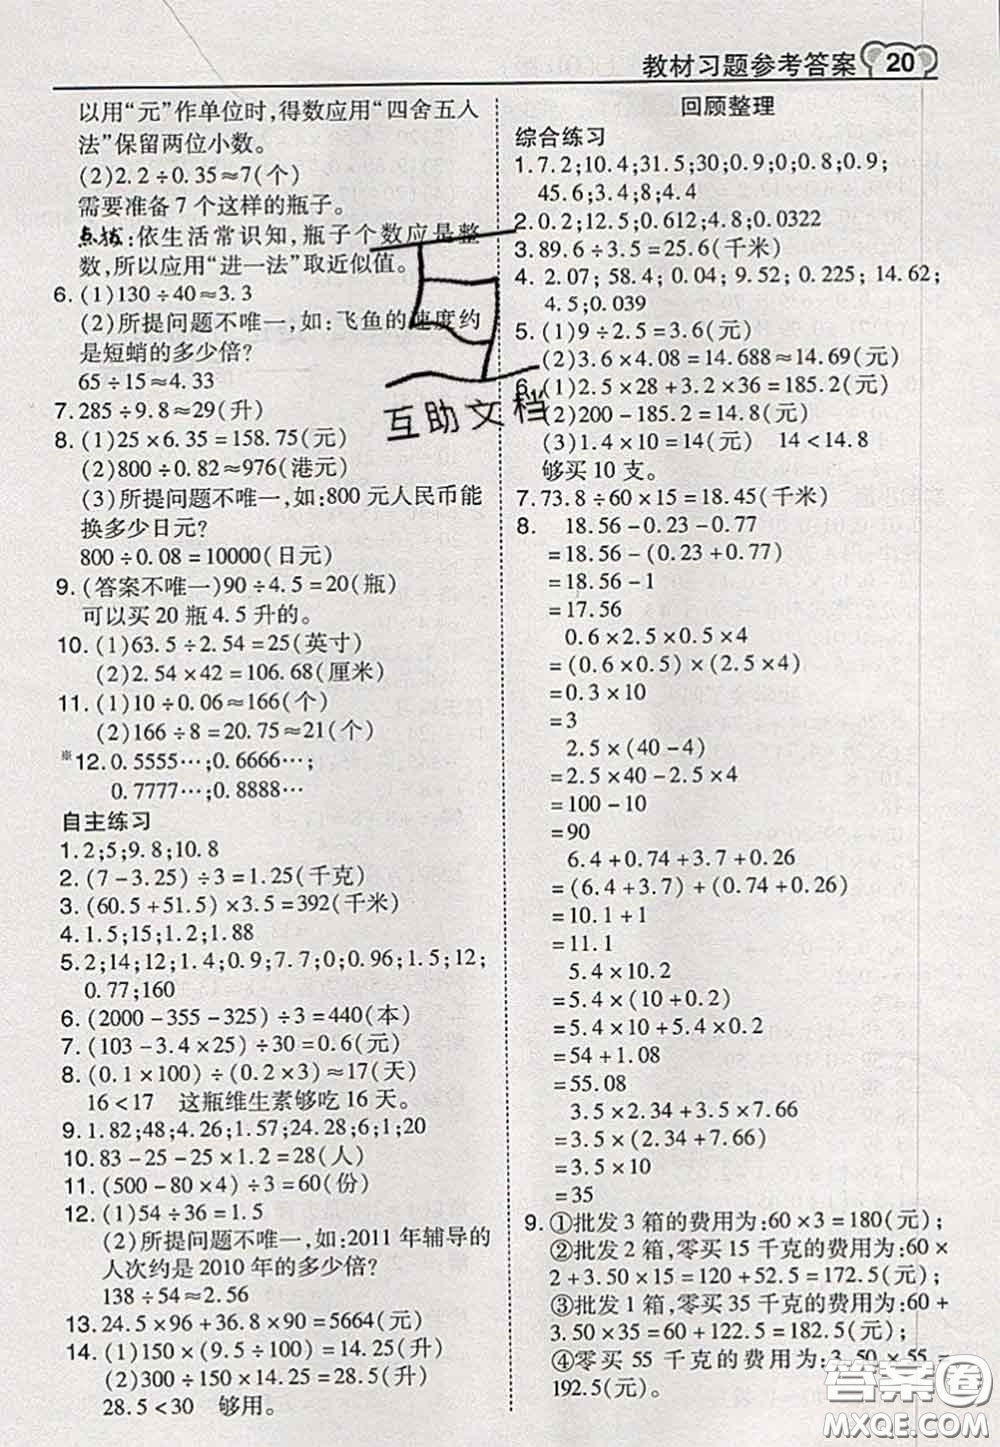 教材习题参考答案 20
以用“元”作单位时,得数应用“四舍五入
法”保留两位小数。
(2)2.2÷0.35≈7(个)
需要准备 7 个这样的瓶子。
点拨:依生活常识知,瓶子个数应是整
数,所以应用“进一法”取近似值。
6. (1)130÷40≈3.3
(2)所提问题不唯一,如:飞鱼的速度约
是短蛸的多少倍?
65÷15≈4.33
7.285÷9.8≈29(升)
8. (1)25×6.35=158.75(元)
(2)800÷0.82≈976(港元)
(3)所提问题不唯一,如:800 元人民币能
换多少日元?
800÷0.08=10000(日元)
9. (答案不唯一)90÷4.5=20(瓶)
可以买 20 瓶 4.5 升的。
10. (1)63.5÷2.54=25(英寸)
(2)2.54×42=106.68(厘米)
11. (1)10÷0.06≈166(个)
(2)166÷8=20.75≈21(个)
※12.0.5555…;0.6666…;
0.7777…;0.8888…
自主练习
1.2;5;9.8;10.8
2. (7-3.25)÷3=1.25(千克)
3. (60.5+51.5)×3.5=392(千米)
4.1.5;15;1.2;1.88
5.2;14;12;1.4;0.9;7.7;0;0.96;1.5;12;
0.77;160
6. (2000-355-325)÷3=440(本)
7. (103-3.4×25)÷30=0.6(元)
8. (0.1×100)÷(0.2×3)≈17(天)
16<17 这瓶维生素够吃 16 天。
9.1.82;48;4.26;1.57;24.28;6;1;20
10.83-25-25×1.2=28(人)
11. (500-80×4)÷3=60(份)
12. (1)54÷36=1.5
(2)所提问题不唯一,如:2011 年辅导的
人次约是 2010 年的多少倍?
138÷54≈2.56
13.24.5×96+36.8×90=5664(元)
14. (1)150×(9.5÷100)=14.25(升)
(2)300÷150×14.25=28.5(升)
28.5<30 够用。
回顾整理
综合练习
1.7.2;10.4;31.5;30;0.9;0;0.8;0.9;
45.6;3.4;8;4.4
2.0.2;12.5;0.612;4.8;0.0322
3.89.6÷3.5=25.6(千米)
4. 2.07; 58.4; 0.04; 9.52; 0.225; 14.62;
4.5;0.039
5. (1)9÷2.5=3.6(元)
(2)3.6×4.08=14.688≈14.69(元)
6. (1)2.5×28+3.2×36=185.2(元)
(2)200-185.2=14.8(元)
(3)1.4×10=14(元) 14<14.8
够买 10 支。
7.73.8÷60×15=18.45(千米)
8. 18.56-0.23-0.77
=18.56-(0.23+0.77)
=18.56-1
=17.56
0.6×2.5×0.5×4
=(0.6×0.5)×(2.5×4)
=0.3×10
=3
2.5×(40-4)
=2.5×40-2.5×4
=100-10
=90
6.4+0.74+3.7+0.26
=(6.4+3.7)+(0.74+0.26)
=10.1+1
=11.1
5.4×10.2
=5.4×(10+0.2)
=5.4×10+5.4×0.2
=54+1.08
=55.08
3.5×2.34+3.5×7.66
=3.5×(2.34+7.66)
=3.5×10
=35
9. ①批发 3 箱的费用为:60×3=180(元);
②批发 2 箱,零买 15 千克的费用为:60×
2+3.50×15=120+52.5=172.5(元);
③批发 1 箱,零买 35 千克的费用为:60+
3.50×35=60+122.5=182.5(元);
④零买 55 千克的费用为:3.50×55=
192.5(元)。
互助文档
答案圈
MXQE.COM